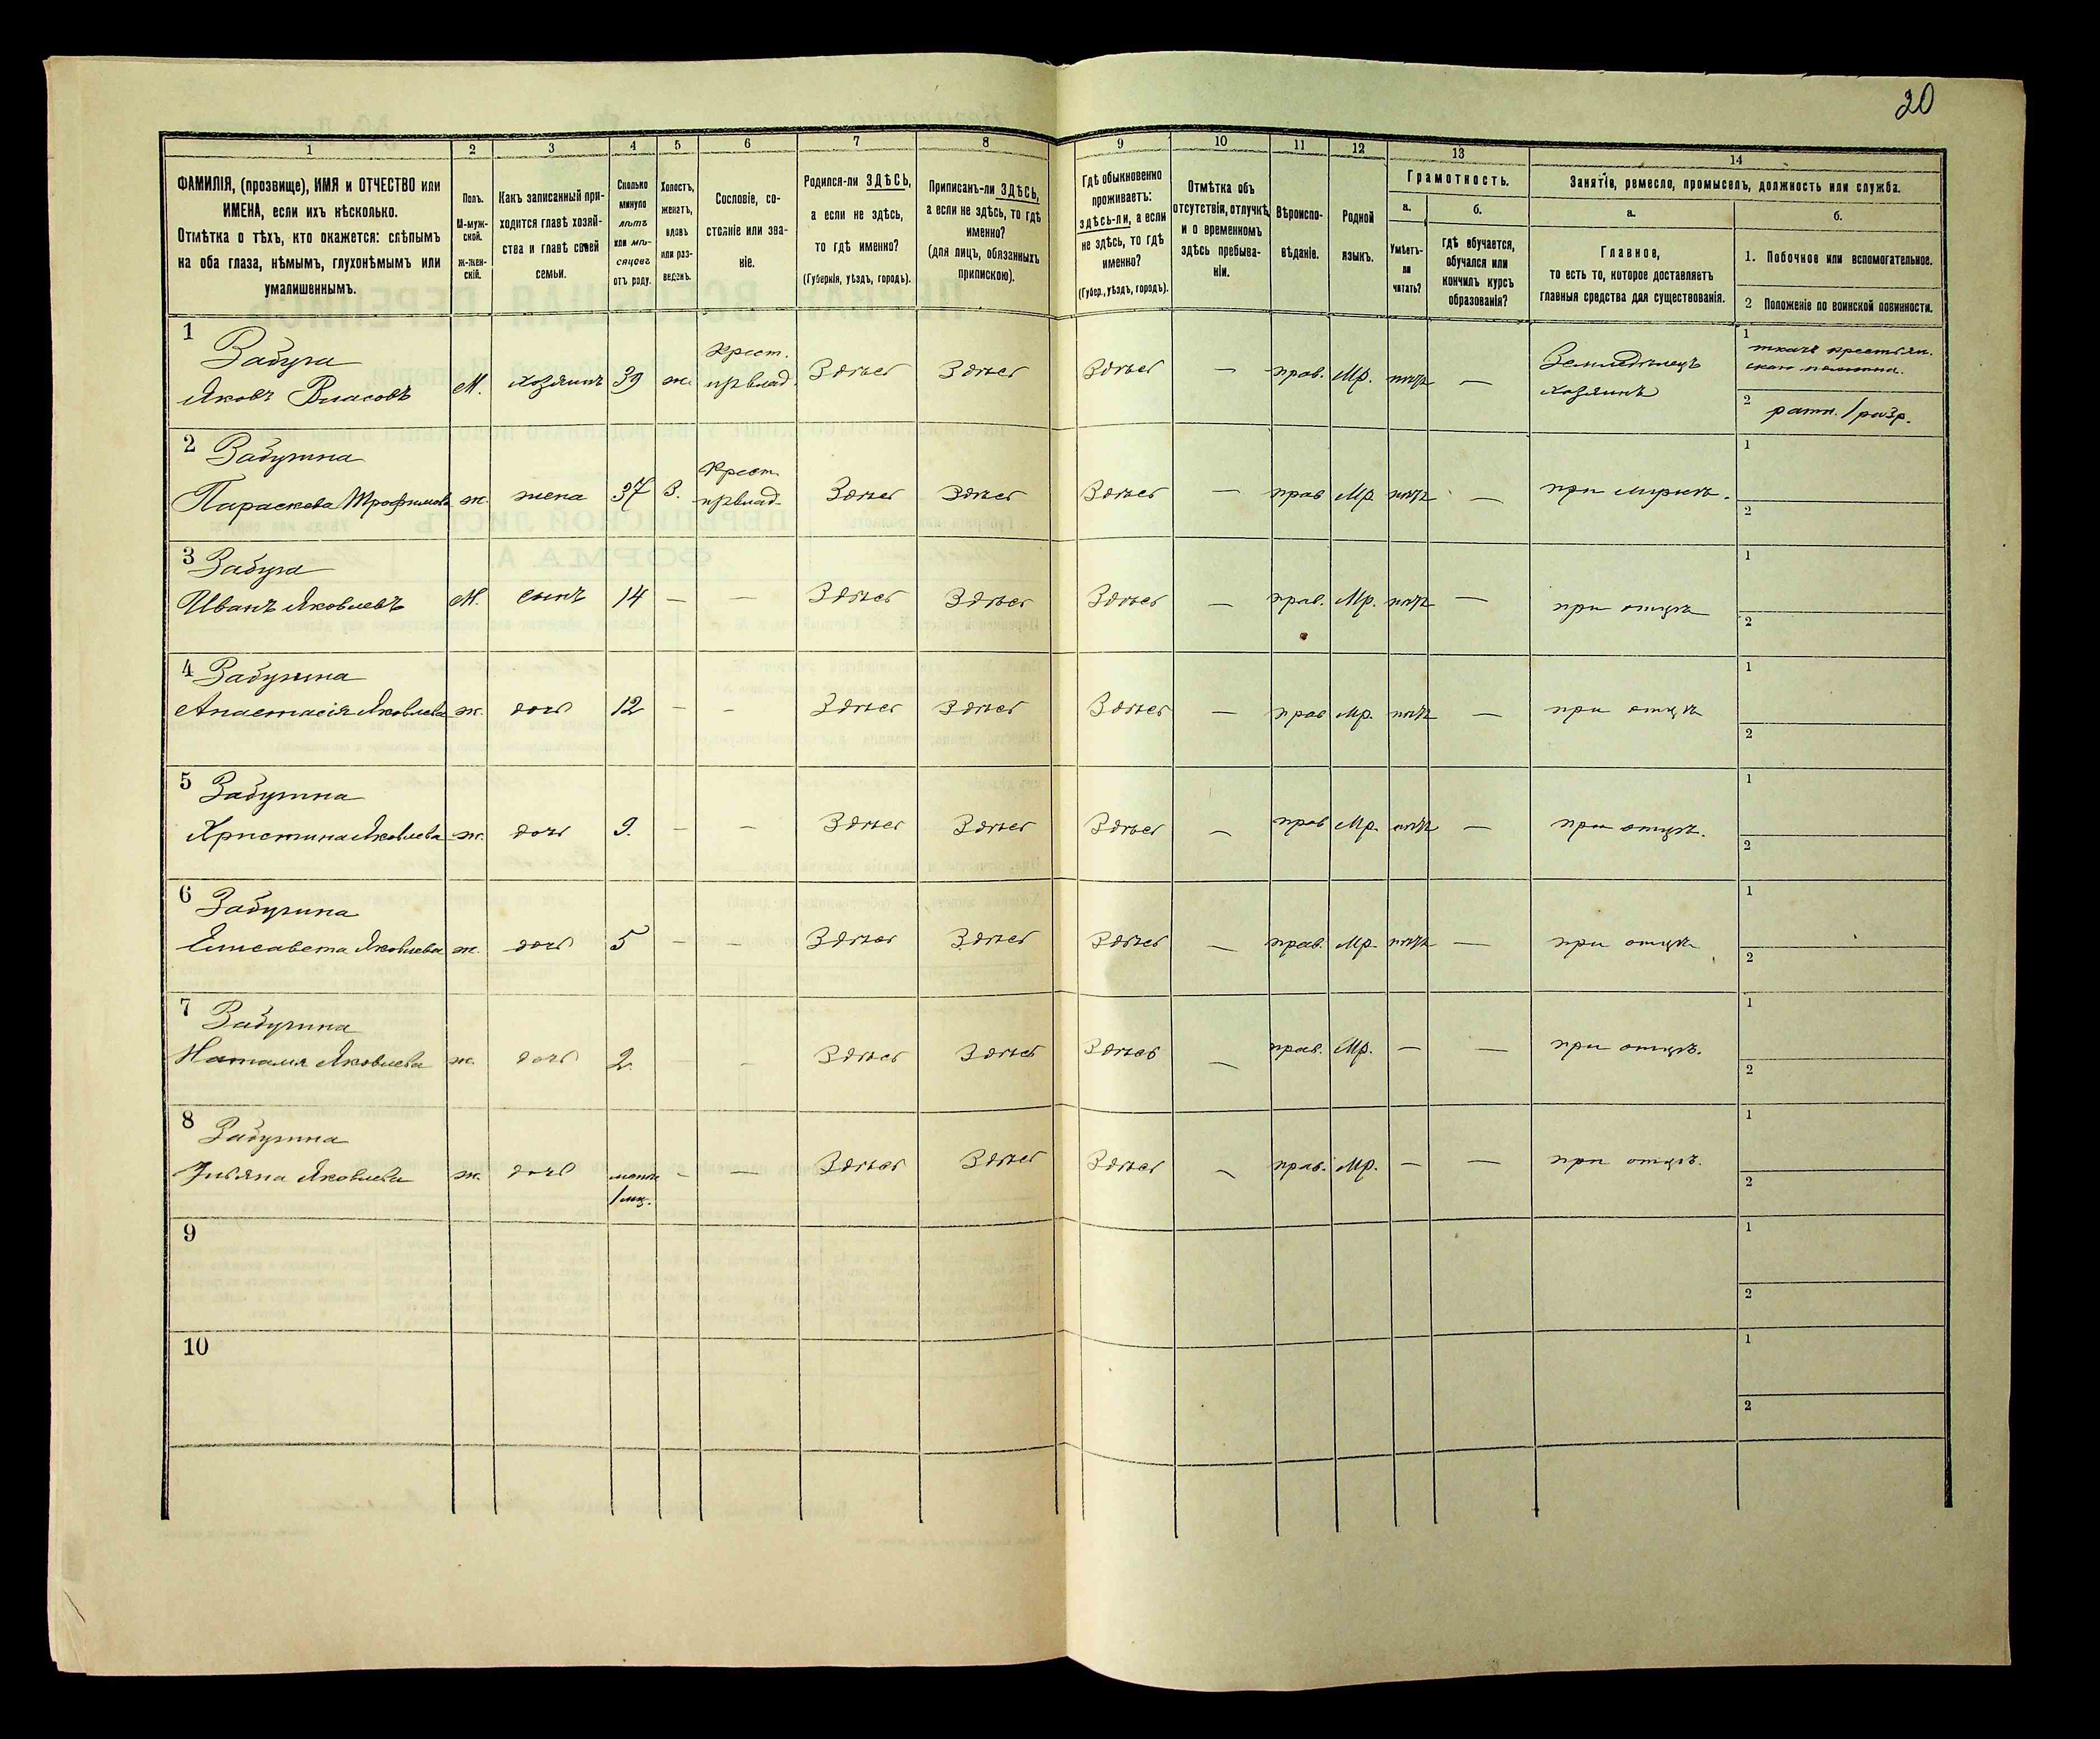 20
1 2 3 4 5 6 7 8 9 10 11 12 13 14
ФАМИЛІЯ, (прозвище), ИМЯ и ОТЧЕСТВО или
ИМЕНА, если ихъ нѣсколько.
Отмѣтка о тѣхъ, кто окажется: слѣпымъ
на оба глаза, нѣмымъ, глухонѣмымъ или
умалишеннымъ.
Полъ.
М-муж-
ской.
ж-жен-
скій.
Какъ записанный при-
ходится главѣ хозяй-
ства и главѣ своей
семьи.
Сколько
минуло
лѣтъ
или мѣ-
сяцевъ
отъ роду.
Холостъ,
женатъ,
вдовъ
или раз-
веденъ.
Сословіе, со-
стояніе или зва-
ніе.
Родился-ли ЗДѢСЬ,
а если не здѣсь,
то гдѣ именно?
(Губернія, уѣздъ, городъ).
Приписанъ-ли ЗДѢСЬ,
а если не здѣсь, то гдѣ
именно?
(для лицъ, обязанныхъ
припискою).
Гдѣ обыкновенно
проживаетъ:
здѣсь-ли, а если
не здѣсь, то гдѣ
именно?
(Губер., уѣздъ, городъ).
Отмѣтка объ
отсутствіи, отлучкѣ,
и о временномъ
здѣсь пребыва-
ніи.
Вѣроиспо-
вѣданіе.
Родной
языкъ.
Грамотность.
а.
Умѣетъ-
ли
читать?
б.
гдѣ обучается,
обучался или
кончилъ курсъ
образованія?
Занятіе, ремесло, промыселъ, должность или служба.
а.
Главное,
то есть то, которое доставляетъ
главныя средства для существованія.
б.
1. Побочное или вспомогательное.
2 Положеніе по воинской повинности.
1
Забуга
Яковъ Власовъ
М. хозяинъ 39 ж.
Крест.
Здѣсь Здѣсь Здѣсь — прав. Мр. нѣтъ —
Земледѣлецъ
хозяинъ
1
ткачъ крестьян.
2
ратн. 1 разр.
2
Забугина
Параскева Трофимова ж. жена 37 З.
Крест.
Здѣсь Здѣсь Здѣсь — прав Мр нѣтъ — при мужѣ.
1
2
3
Забуга
Иванъ Яковлевъ М. сынъ 14 — — Здѣсь Здѣсь Здѣсь — прав. Мр. нѣтъ — при отцѣ
1
2
4
Забугина
Анастасія Яковлева ж. дочь 12 — — Здѣсь Здѣсь Здѣсь — прав Мр. нѣтъ — при отцѣ
1
2
5
Забугина
Христина Яковлева ж. дочь 9. — — Здѣсь Здѣсь Здѣсь — прав Мр. нѣтъ — при отцѣ.
1
2
6
Забугина
Елисавета Яковлева ж. дочь 5 — — Здѣсь Здѣсь Здѣсь — прав. Мр. нѣтъ — при отцѣ
1
2
7
Забугина
Наталія Яковлева ж. дочь 2. — — Здѣсь Здѣсь Здѣсь — прав. Мр. — — при отцѣ.
1
2
8
Забугина
Ульяна Яковлева ж. дочь менѣе — — Здѣсь Здѣсь Здѣсь — прав. Мр. — — при отцѣ.
1 мц.
1
2
9
1
2
10
1
2